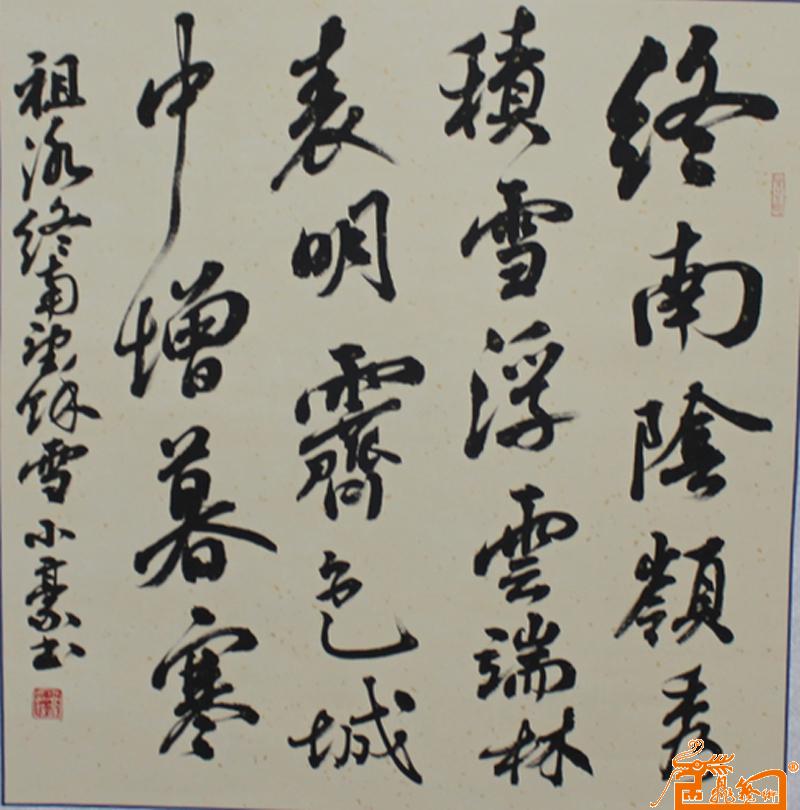 終南陰嶺秀
積雪浮雲端林
表明霽色城
中增暮寒
祖詠終南望餘雪 小豪書